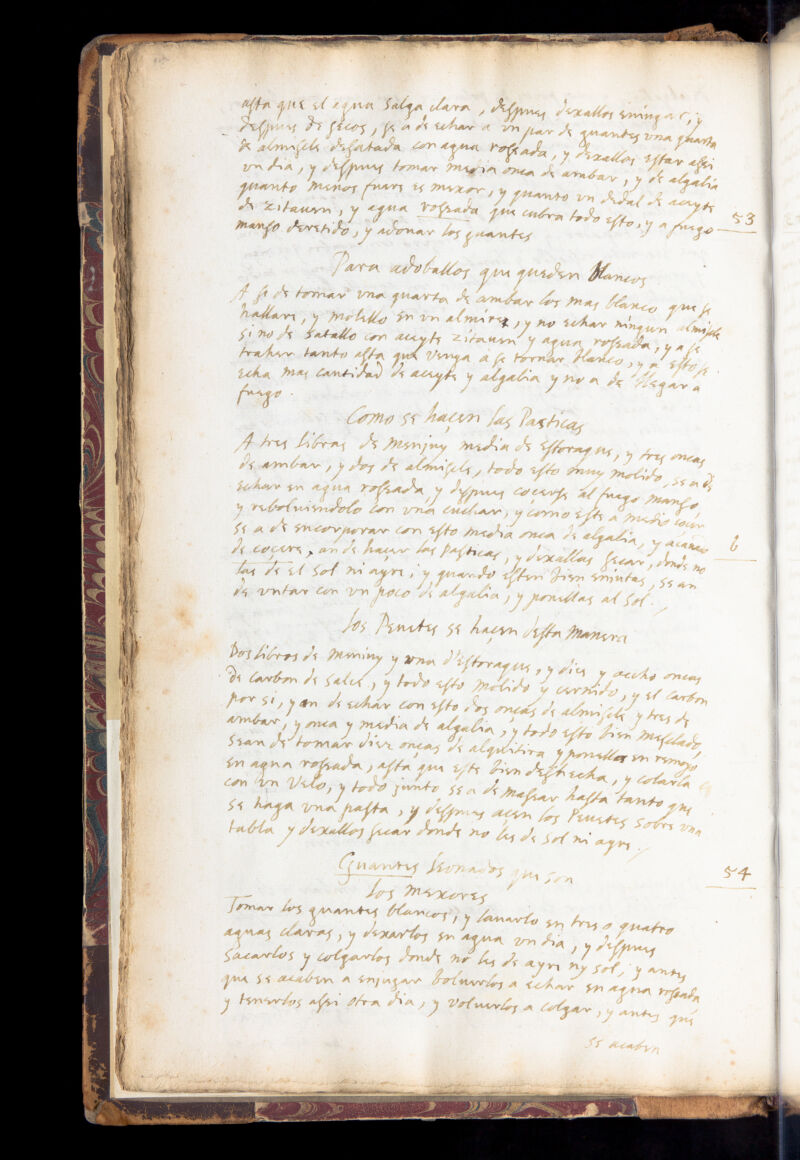 asta que el agua salga clara, despues dexallos eningar, y
despues de secos, se a de echar a vn par de guantes vna quarta
de almiscle desatada con agua rossada, y dexallos estar assi
vn dia, y despues tomar media onca de ambar, y de algalia
quanto menos fuere es mexor, y quanto vn dedal de aceyte
de zitauen, y agua rossada que cubra todo esto, y a fuego
53
manso deretido, y adonar los guantes
Para adoballos que queden blancos
A se de tomar vna quarta de ambar los mas blanco que se
hallare, y molello en vn almirez, y no echar ningun almiscle
si no de satallo con aceyte zitauen y agua rossada, y a se
traher tanto asta que venga a se tornar blanco, y a esto se
echa mas cantidad de aceyte y algalia y no a de llegar a
fuego.
Como se haçen las Pasticas
A tres libras de menjuy media de Estoraque, y tres oncas
de ambar, y dos de almiscle, todo esto muy molido, se a de
echar en agua rossada, y despues cocerse al fuego manso,
y rebolviendolo con vna cuchar, y como este a medio cocer
se a de encorporar con esto media onca de algalia, y acanco
6
de coçere, an de hacer las Pasticas, y dexallas secar, donde no
las de el sol ni ayre, y quando esten bien enjutas, se an
de vntar con vn poco de algalia, y ponellas al sol.
Los Peuetes se haçen desta manera
Dos libras de meniuy y vna d'Estoraque, y dies y occho oncas
de carbon de salce, y todo esto molido y cernido, y el carbon
por si, y an de echar con esto dos onças de almiscle y tres de
ambar, y onca y media de algalia, y todo esto bien mesclado,
sean de tomar diez onças de alquitira y ponella en remojo
en agua rossada, asta que este bien desecha, y colarla
con vn Velo, y todo junto se a de massar hasta tanto que
se haga vna pasta, y despues açen los Peuetes sobre vna
tabla y dexallos secar donde no les de sol ni ayre.
54
Guantes Leonados que son
los mexores
Tomar los guantes blancos, y lauarlo en tres o quatro
aguas claras, y dexarlos en agua vn dia, y despues
sacarlos y colgarlos donde no les de ayre ny sol, y antes
que se acaben a enjugar boluerlos a echar en agua rossada
y tenerlos assi otra dia, y voluerlos a colgar, y antes que
se acaben